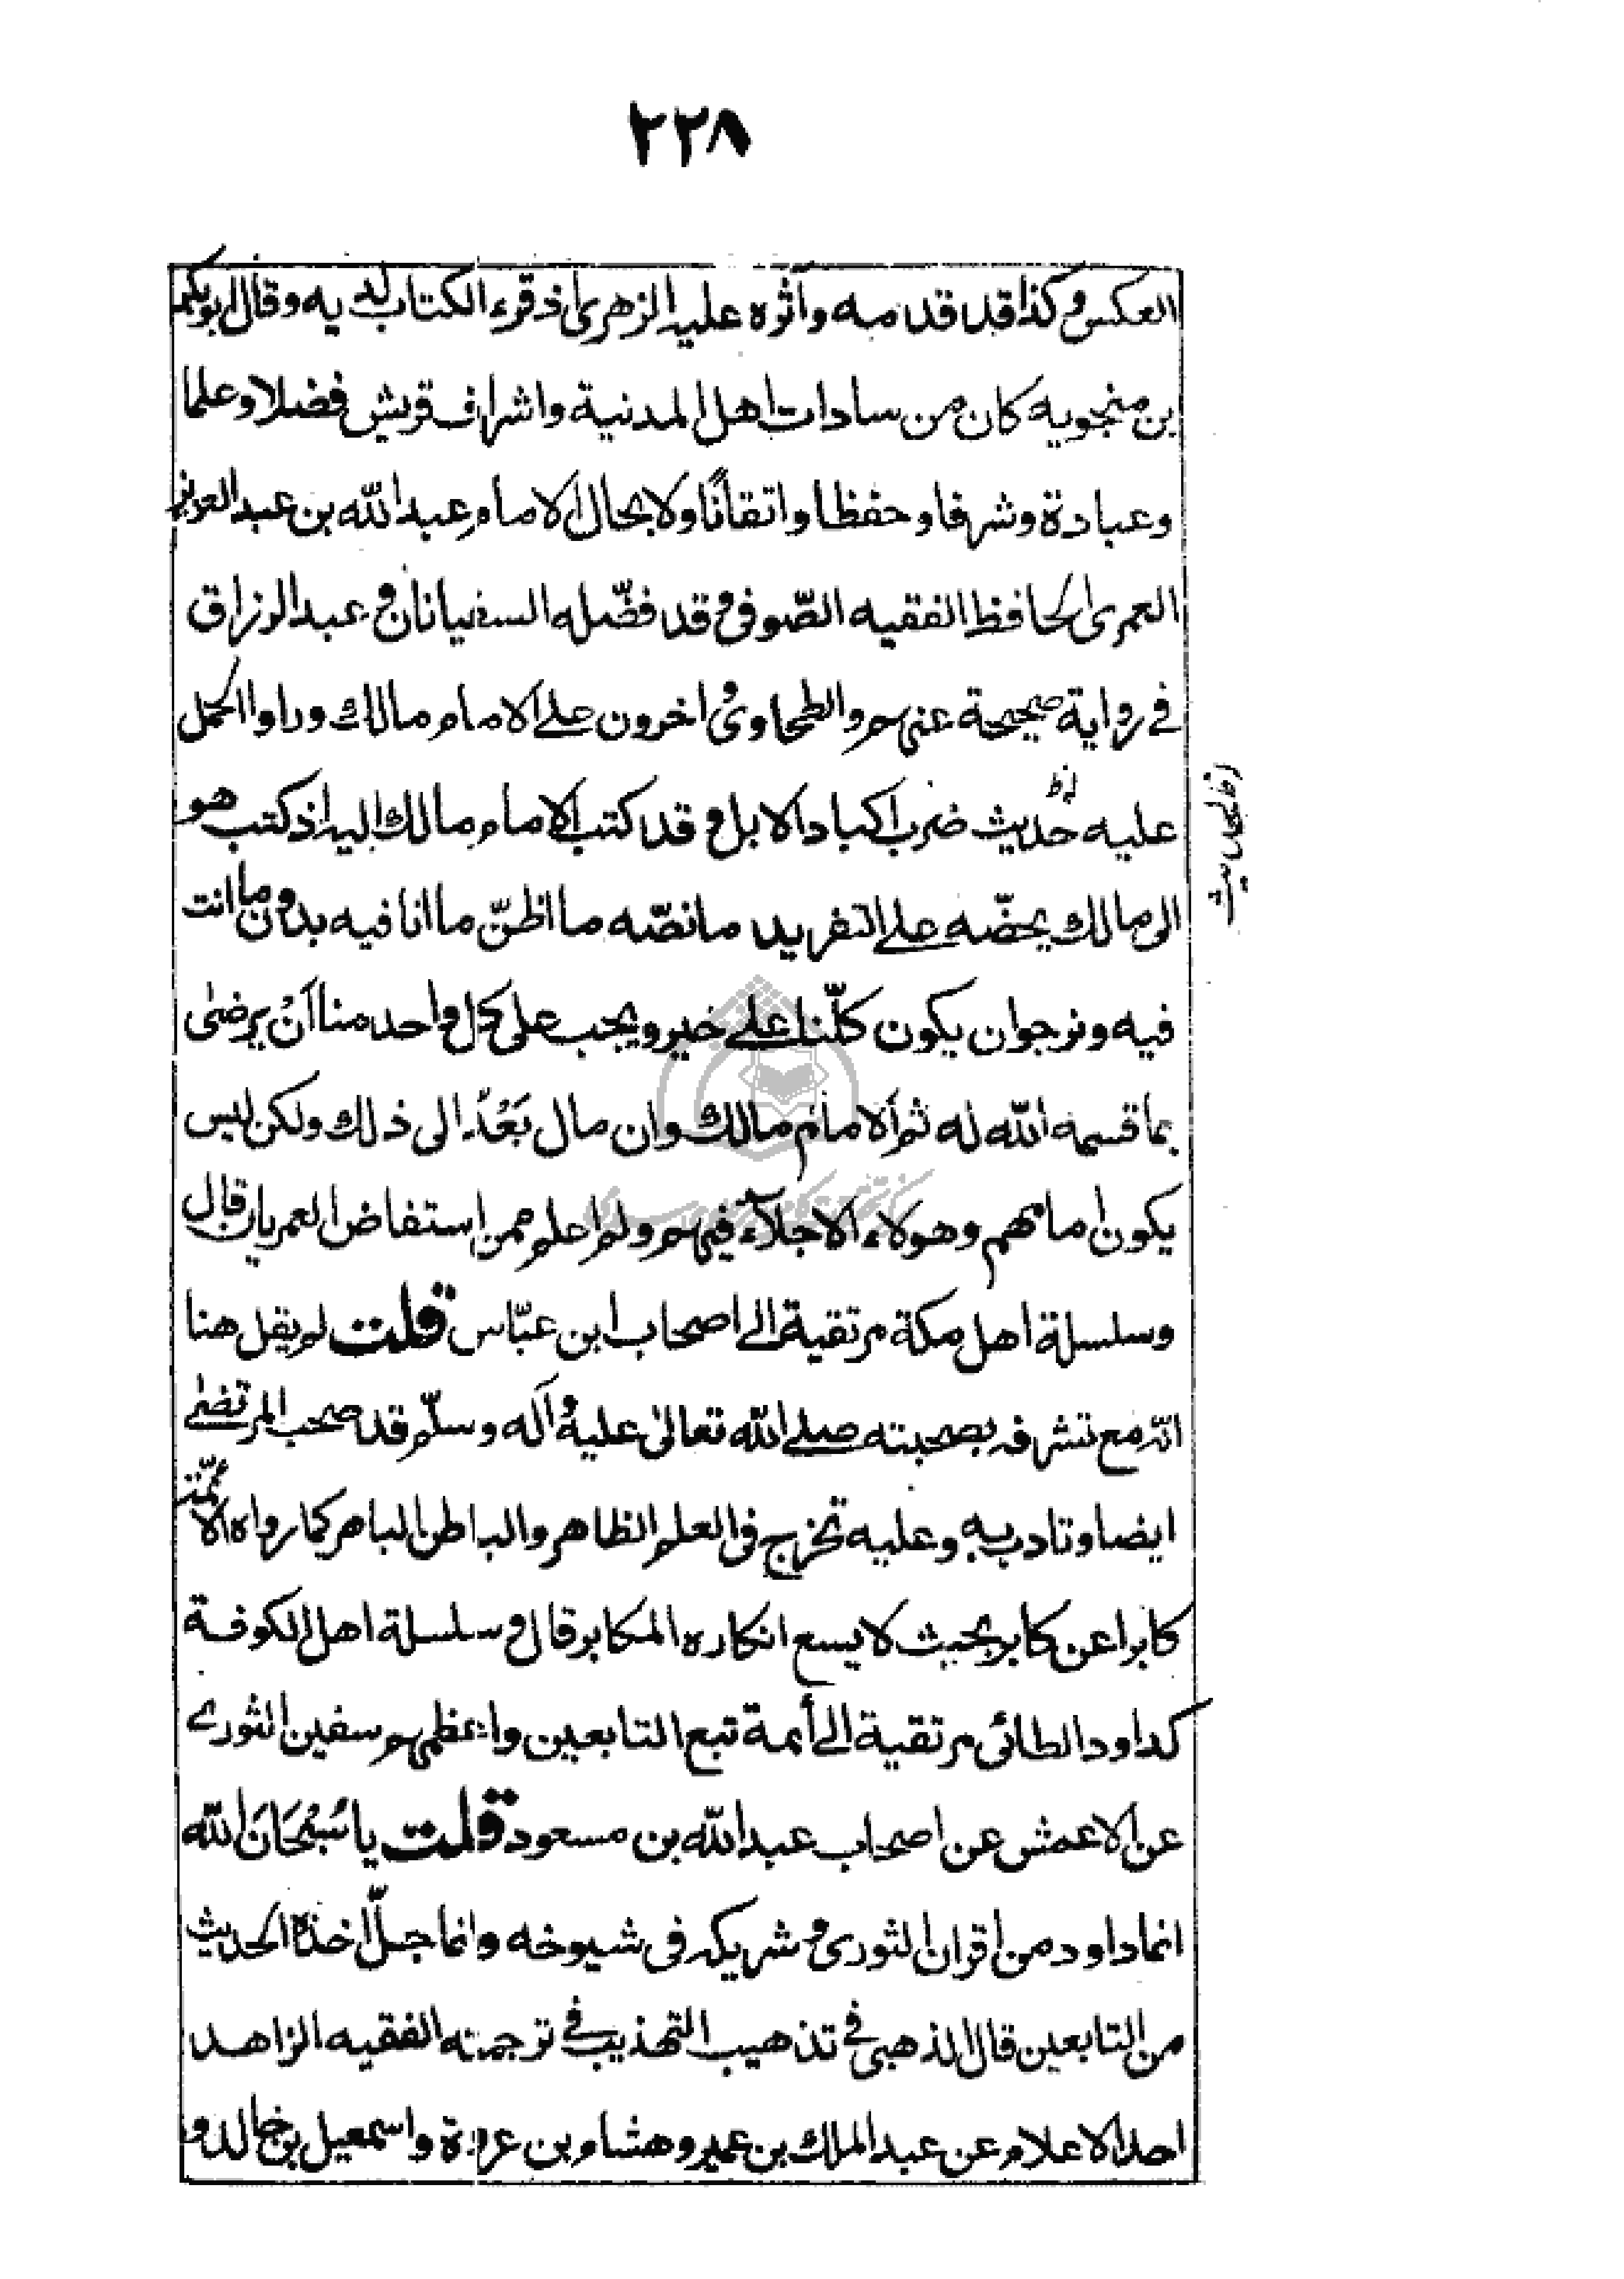 ٢٢٨
العكس وكذا قد قدمه وآثره عليه الزهري اذ قرء الكتاب لديه وقال ابو بكر
بن منجويه كان من سادات اهل المدنية واشراف قريش فضلا وعلما
وعبادة وشرفا وحفظا واتقانًا ولا بحال الامام عبد الله بن عبد العزيز
العمرى الحافظ الفقيه الصّوفي وقد فضّله السفيانان وعبد الرزاق
في رواية صحيحة عنهم والطحاوي واخرون على الامام مالك وراوا الحمل
عليه لفظ حديث ضرب اكباد الابل وقد كتب الامام مالك اليه اذ كتب هو
الى مالك يحضّه على التفريد مانصّه ما اظنّ ما انا فيه بدون ما انت
فيه ونرجوان يكون كلّنا على خير ويجب على كل واحد منا اَنْ يرضىٰ
بما قسمه الله له ثم الامام مالك وان مال بَعْدُ الى ذلك ولكن ليس
يكون امامهم وهولاء الاجلآء فيهم ولم اعلم ممن استفاض العمريان قال
وسلسلة اهل مكة مرتقية الى اصحاب ابن عبّاس قلت لم يقل هنا
انّه مع تشرفه بصحبته صلى الله تعالىٰ عليه وآله وسلّم قد صحب المرتضىٰ
ايضا وتادب به وعليه تخرج في العلم الظاهر والباطن الباهر كما رواه الائمّة
كابرا عن كابر بحيث لا يسع انكاره المكابر قال وسلسلة اهل الكوفة
كداود الطائي مرتقية الى أئمة تبع التابعين واعظمهم سفين الثورى
عن الاعمش عن اصحاب عبد الله بن مسعود قلت يا سُبْحَانَ الله
انما داود من اقران الثورى وشريكه في شيوخه وانما جلّ اخذه الحديث
من التابعين قال الذهبي في تذهيب التهذيب في ترجمته الفقيه الزاهد
احد الاعلام عن عبد الملك بن عمير وهشام بن عروة واسمعيل بن خالد و